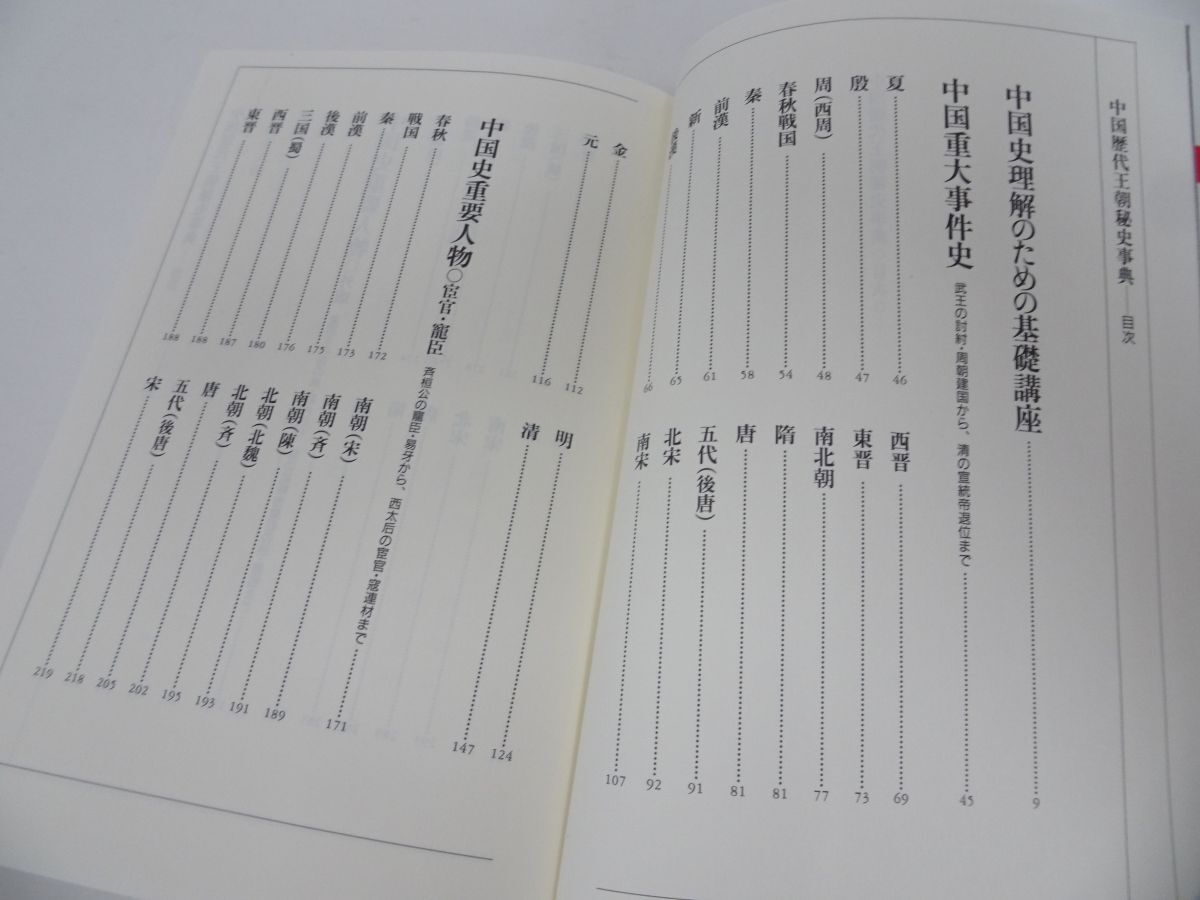 中国歴代王朝秘史事典――目次
中国史理解のための基礎講座……9
中国重大事件史 武王の討紂・周朝建国から、清の宣統帝退位まで……45
夏……46
殷……47
周(西周)……48
春秋戦国……54
秦……58
前漢……61
新……65
後漢……66
西晋……69
東晋……73
南北朝……77
隋……81
唐……81
五代(後唐)……91
北宋……92
南宋……107
金……112
元……116
明……124
清……147
中国史重要人物○宦官・寵臣 斉桓公の寵臣・易牙から、西太后の宦官・寇連材まで……171
春秋……172
戦国……173
秦……175
前漢……176
後漢……180
三国(蜀)……187
西晋……188
東晋……188
南朝(宋)……189
南朝(斉)……191
南朝(陳)……193
北朝(北魏)……195
北朝(斉)……202
唐……205
五代(後唐)……218
宋……219